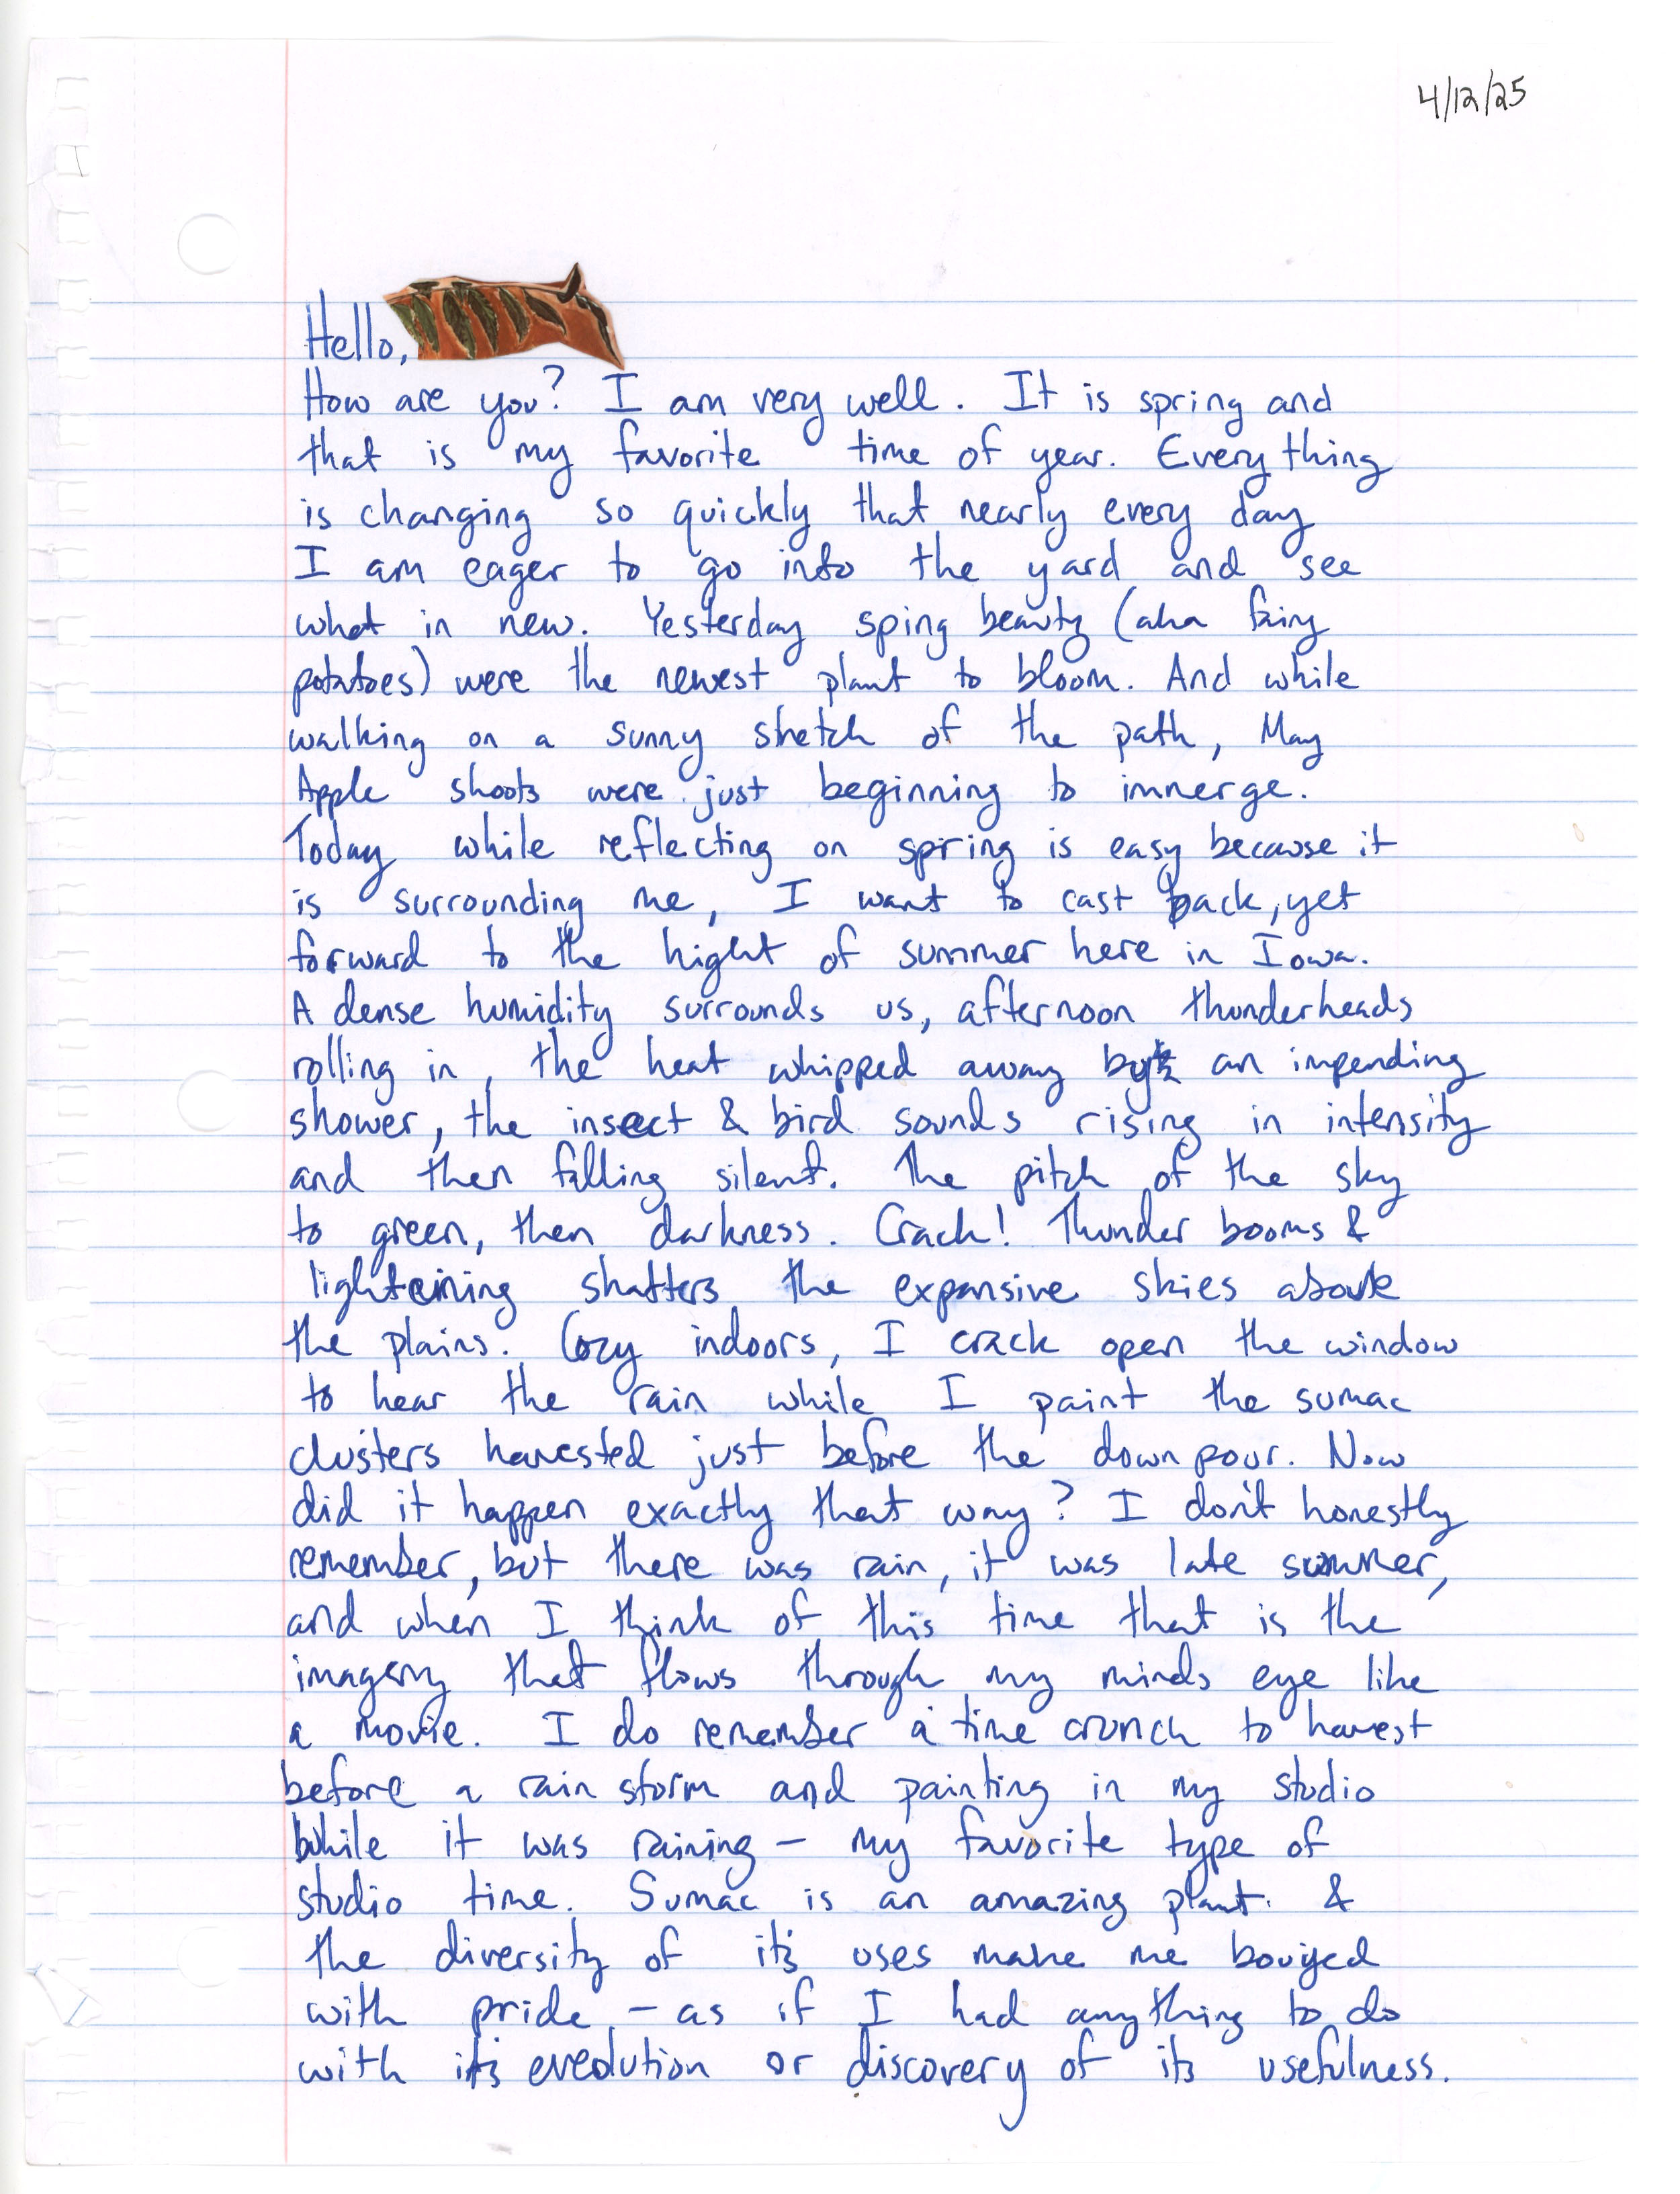 4/12/25
Hello,
How are you? I am very well. It is spring and
that is my favorite time of year. Everything
is changing so quickly that nearly every day
I am eager to go into the yard and see
what in new. Yesterday sping beauty (aka fairy
potatoes) were the newest plant to bloom. And while
walking on a sunny stretch of the path, May
Apple shoots were just beginning to immerge.
Today while reflecting on spring is easy because it
is surrounding me, I want to cast back, yet
forward to the hight of summer here in Iowa.
A dense humidity surrounds us, afternoon thunderheads
rolling in, the heat whipped away by an impending
shower, the insect & bird sounds rising in intensity
and then falling silent. The pitch of the sky
to green, then darkness. Crack! Thunder booms &
lightening shatters the expansive skies above
the plains. Cozy indoors, I crack open the window
to hear the rain while I paint the sumac
clusters harvested just before the downpour. Now
did it happen exactly that way? I don't honestly
remember, but there was rain, it was late summer,
and when I think of this time that is the
imagery that flows through my minds eye like
a movie. I do remember a time crunch to harvest
before a rain storm and painting in my studio
while it was raining - my favorite type of
studio time. Sumac is an amazing plant &
the diversity of it's uses make me bouyed
with pride - as if I had anything to do
with its evolution or discovery of its usefulness.